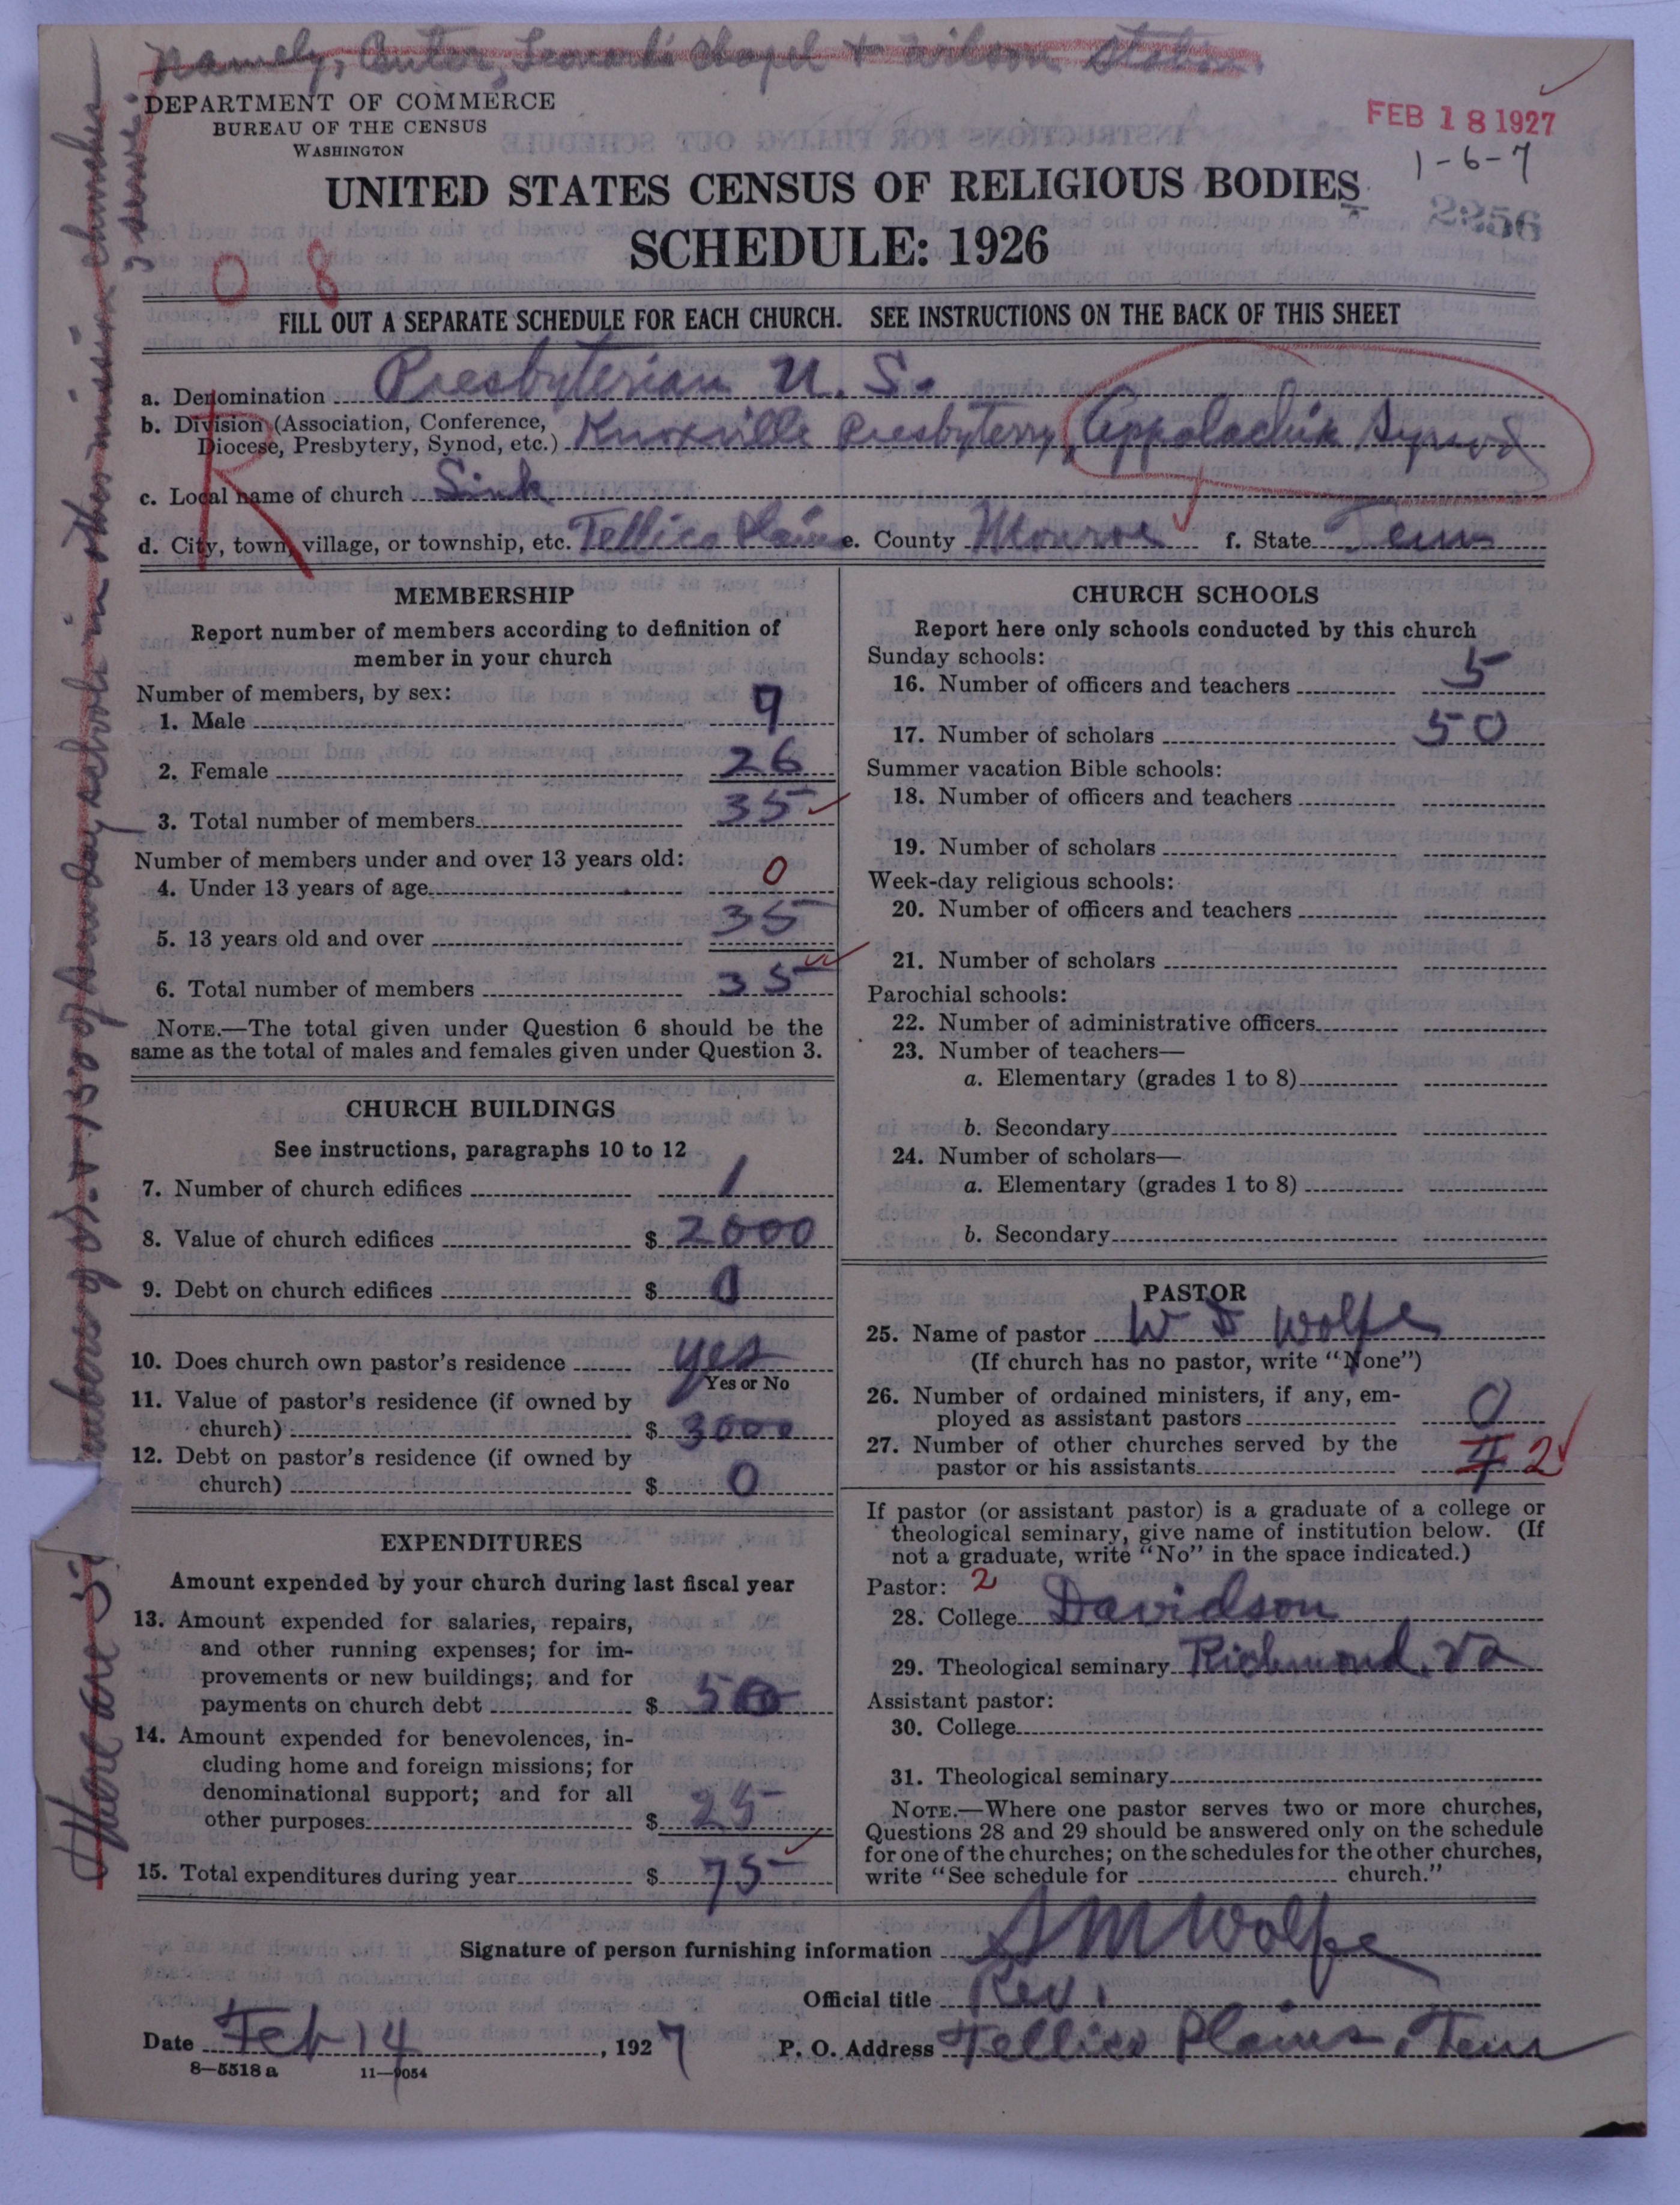 Namely, Center, Leonard's Chapel + Wilson Station.
DEPARTMENT OF COMMERCE
BUREAU OF THE CENSUS
WASHINGTON
FEB 18 1927
1-6-7
2256
UNITED STATES CENSUS OF RELIGIOUS BODIES
SCHEDULE: 1926
0 8
FILL OUT A SEPARATE SCHEDULE FOR EACH CHURCH. SEE INSTRUCTIONS ON THE BACK OF THIS SHEET
R
a. Denomination Presbyterian U. S.
b. Division (Association, Conference,
Diocese, Presbytery, Synod, etc.) Knoxville Presbyterry, Appolachia Synod
c. Local name of church Sink
d. City, town, village, or township, etc. Tellico Plains e. County Monroe f. State Tenn
MEMBERSHIP
Report number of members according to definition of
member in your church
Number of members, by sex:
1. Male 9
2. Female 26
3. Total number of members 35
Number of members under and over 13 years old:
4. Under 13 years of age 0
5. 13 years old and over 35
6. Total number of members 35
NOTE.—The total given under Question 6 should be the
same as the total of males and females given under Question 3.
CHURCH BUILDINGS
See instructions, paragraphs 10 to 12
7. Number of church edifices 1
8. Value of church edifices $ 2000
9. Debt on church edifices $ 0
10. Does church own pastor's residence yes
Yes or No
11. Value of pastor's residence (if owned by
church) $ 3000
12. Debt on pastor's residence (if owned by
church) $ 0
EXPENDITURES
Amount expended by your church during last fiscal year
13. Amount expended for salaries, repairs,
and other running expenses; for im-
provements or new buildings; and for
payments on church debt $ 50
14. Amount expended for benevolences, in-
cluding home and foreign missions; for
denominational support; and for all
other purposes $ 25
15. Total expenditures during year $ 75
CHURCH SCHOOLS
Report here only schools conducted by this church
Sunday schools:
16. Number of officers and teachers 5
17. Number of scholars 50
Summer vacation Bible schools:
18. Number of officers and teachers
19. Number of scholars
Week-day religious schools:
20. Number of officers and teachers
21. Number of scholars
Parochial schools:
22. Number of administrative officers
23. Number of teachers—
a. Elementary (grades 1 to 8)
b. Secondary
24. Number of scholars—
a. Elementary (grades 1 to 8)
b. Secondary
PASTOR
25. Name of pastor W S Wolfe
(If church has no pastor, write "None")
26. Number of ordained ministers, if any, em-
ployed as assistant pastors 0
27. Number of other churches served by the
pastor or his assistants 2
If pastor (or assistant pastor) is a graduate of a college or
theological seminary, give name of institution below. (If
not a graduate, write "No" in the space indicated.)
Pastor: 2
28. College Davidson
29. Theological seminary Richmond, Va
Assistant pastor:
30. College
31. Theological seminary
NOTE.—Where one pastor serves two or more churches,
Questions 28 and 29 should be answered only on the schedule
for one of the churches; on the schedules for the other churches,
write "See schedule for church."
Signature of person furnishing information S M Wolfe
Official title Rev.
Date Feb 14, 1927 P. O. Address Tellico Plains, Tenn
8—5518 a 11—9054
There are of S.S. + 150 of Sunday schools in other mission churches
I serve.